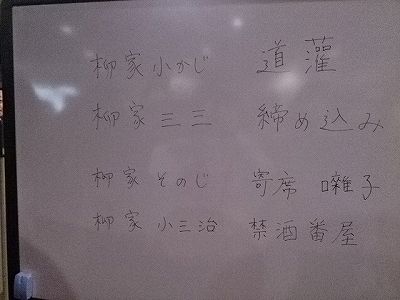 柳家小かじ 道灌
柳家三三 締め込み
柳家そのじ 寄席囃子
柳家小三治 禁酒番屋